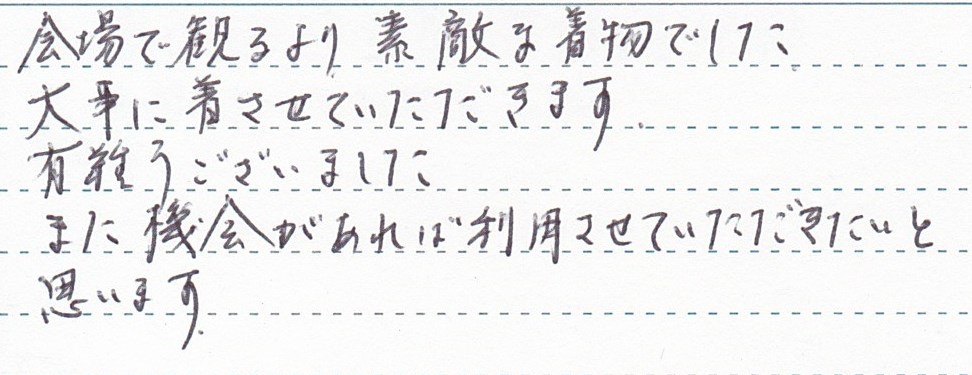 会場で観るより素敵な着物でした
大事に着させていただきます.
有難うございました
また機会があれば利用させていただきたいと
思います.